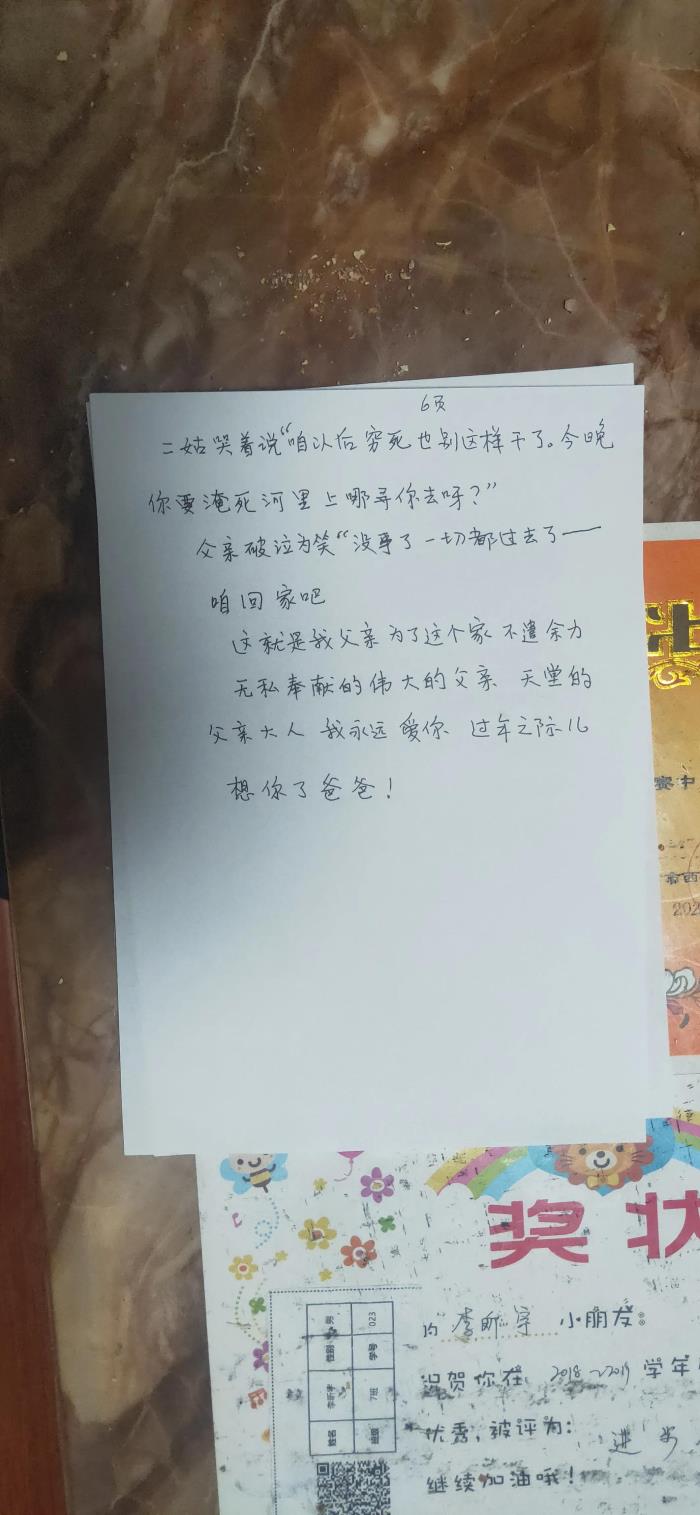 6页
二姑哭着说“咱以后穷死也别这样干了。今晚
你要淹死河里上哪寻你去呀？”
父亲破泣为笑“没事了一切都过去了——
咱回家吧
这就是我父亲为了这个家不遗余力
无私奉献的伟大的父亲 天堂的
父亲大人 我永远爱你 过年之际儿
想你了爸爸！
赛中
202
奖状
小朋友：
祝贺你在 2018~2019 学年
优秀，被评为：
进步
继续加油哦！
姓名 性别 男
班级 7班 学号 023